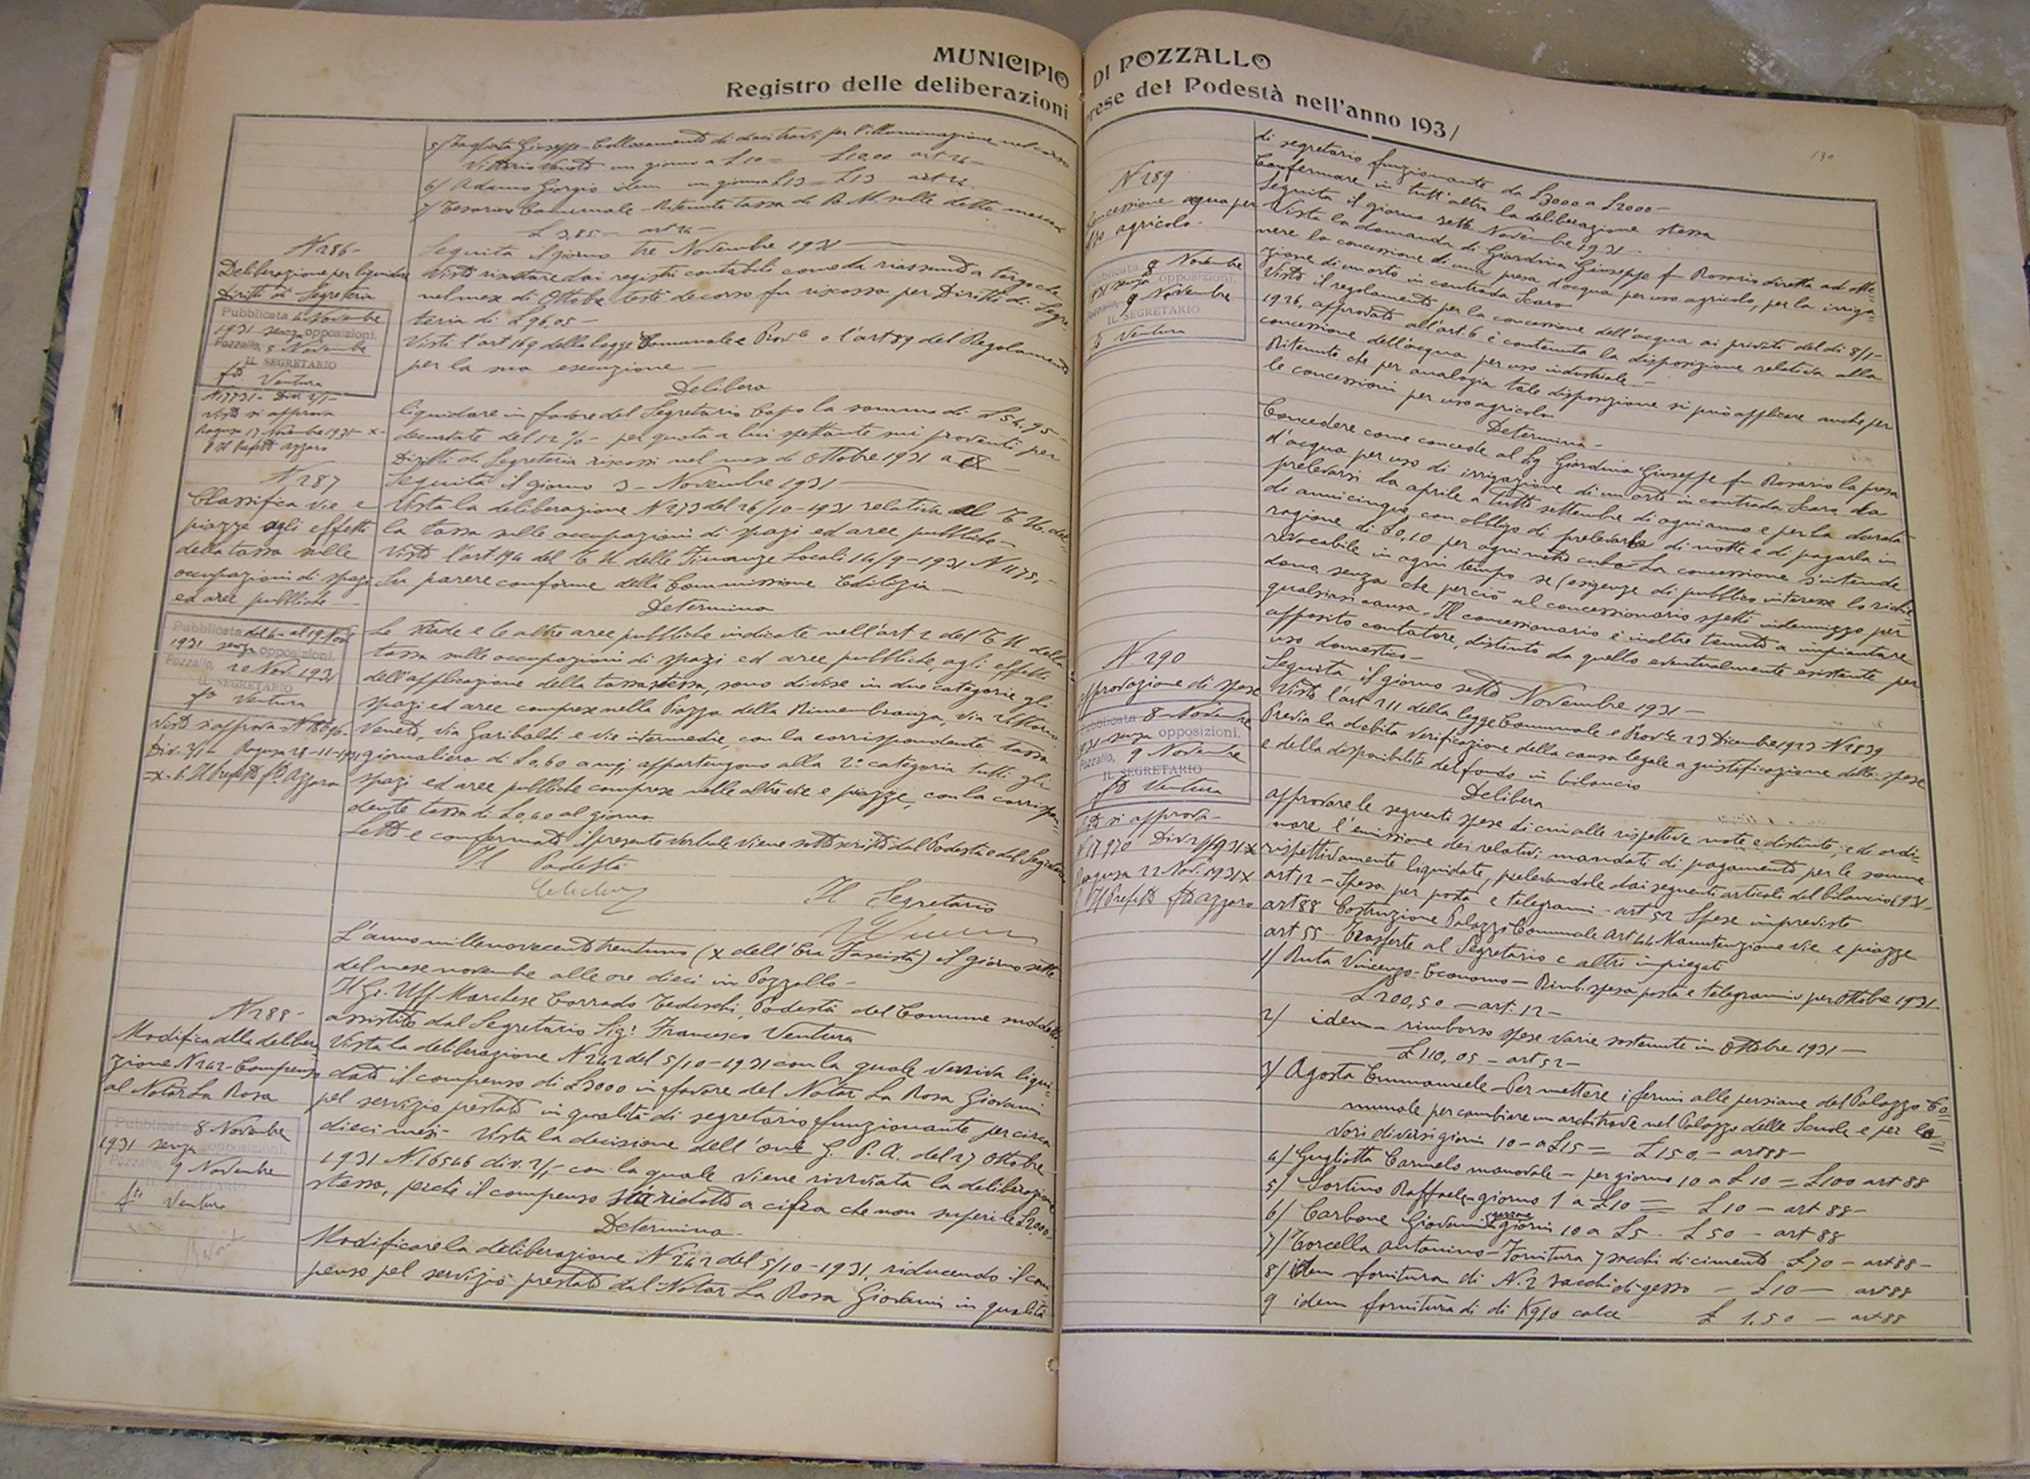 MUNICIPIO DI POZZALLO
Registro delle deliberazioni prese del Podestà nell'anno 1931
5/ Giuseppe Collocamento di per l'illuminazione nel corso
Vittorio Veneto un giorno a £10 = £10,00 art
6/ Adamo Giorgio idem un giorno £13 = £13 art
7/ Tesoriere Comunale Ritenuta tassa di R.M. sulle dette
£ 3,85 - art
N 286-
Deliberazione per liquidare
Diritti di Segreteria
Pubblicata Novembre
1931 senza opposizioni.
Pozzallo, 5 Novembre
IL SEGRETARIO
fto Ventura
Visto si approva
Ragusa 17 Novembre 1931 - X -
Il Prefetto Azzaro
Seguita il giorno tre Novembre 1931
Visto risultare dai registri contabili come da riassunto a tergo che
nel mese di Ottobre testè decorso fu riscossa per Diritti di Segre-
teria di £ 96,05 -
Visti l'art 169 della legge Comunale e Provle e l'art 89 del Regolamento
per la sua esecuzione -
Delibera
liquidare in favore del Segretario Capo la somma di £ 54,95 -
decurtate del 12% - per quota a lui spettante sui proventi per
Diritti di Segreteria riscossi nel mese di Ottobre 1931 a
N 287
Classifica vie e
piazze agli effetti
della tassa sulle
occupazioni di spazi
ed aree pubbliche
Pubblicata dal 6 - al 19 Nov
1931 senza opposizioni.
Pozzallo, 20 Nov. 1931
IL SEGRETARIO
fto Ventura
Visto si approva N
Div. 2/1 - Ragusa 28-11-1931
- X - Il Prefetto fto Azzaro
Seguita il giorno 3 - Novembre 1931 -
Vista la deliberazione N 273 del 26/10-1931 relativa al T.U. del-
la tassa sulle occupazioni di spazi ed aree pubbliche -
Visto l'art 194 del T U delle Finanze Locali 14/9-1931 N 1175, -
Su parere conforme della Commissione Edilizia -
Determina
Le strade e le altre aree pubbliche indicate nell'art 2 del T U della
tassa sulle occupazioni di spazi ed aree pubbliche, agli effetti
dell'applicazione della tassa stessa, sono divise in due categorie gli
spazi ed aree comprese nella Piazza della Rimembranza, via Vittorio
Veneto, via Garibaldi e vie intermedie, con la corrispondente tassa
giornaliera di £0,60 a mq; appartengono alla 2a categoria tutti gli
spazi ed aree pubbliche comprese nelle altre vie e piazze, con la corrispon-
dente tassa di £0,40 al giorno
Letto e confermato il presente verbale viene sottoscritto dal Podestà e dal Segretario
Il Podestà
Il Segretario
L'anno millenovecentotrentuno (X dell'Era Fascista) il giorno sette
del mese novembre alle ore dieci in Pozzallo -
Il Gr. Uff Marchese Corrado Tedeschi, Podestà del Comune suddetto
assistito dal Segretario Sig. Francesco Ventura
N 288 -
Modifica alla delibera-
zione N 242 - Compenso
al Notar La Rosa
Pubblicata 8 Novembre
1931 senza opposizioni.
Pozzallo, 9 Novembre
IL SEGRETARIO
fto Ventura
Vista la deliberazione N 242 del 5/10-1931 con la quale veniva liqui-
dato il compenso di £3000 in favore del Notar La Rosa Giovanni
pel servizio prestato in qualità di segretario funzionante per circa
dieci mesi - Vista la decisione dell'on.le G. P. A. del 27 Ottobre
1931 N 16546 div. 2/1 - con la quale viene rinviata la deliberazione
stessa, perchè il compenso sia ridotto a cifra che non superi le £2000,
Determina
Modificare la deliberazione N 242 del 5/10-1931, riducendo il com-
penso pel servizio prestato dal Notar La Rosa Giovanni in qualità
130
di segretario funzionante da £3000 a £2000 -
Confermare in tutt'altro la deliberazione stessa
N 289
Concessione acqua per
uso agricolo -
Pubblicata 8 Novembre
1931 senza opposizioni.
Pozzallo, 9 Novembre
IL SEGRETARIO
fto Ventura
Seguita il giorno sette Novembre 1931 -
Vista la domanda di Giardina Giuseppe fu Rosario diretta ad otte-
nere la concessione di una presa d'acqua per uso agricolo, per la irriga-
zione di un orto in contrada Scaro
Visto il regolamento per la concessione dell'acqua ai privati del dì 8/1-
1926, approvato all'art. 6 è contenuta la disposizione relativa alla
concessione dell'acqua per uso industriale -
Ritenuto che per analogia tale disposizione si può applicare anche per
le concessioni per uso agricolo
Determina -
Concedere come concede al Sig Giardina Giuseppe fu Rosario la presa
d'acqua per uso di irrigazione di un orto in contrada Scaro da
prelevarsi da aprile a tutto settembre di ogni anno e per la durata
di anni cinque con obbligo di prelevarla di notte e di pagarla in
ragione di £0,10 per ogni metro cubo - La concessione s'intende
revocabile in ogni tempo se esigenze di pubblico interesse lo richie-
dono senza che perciò al concessionario spetti indennizzo per
qualsiasi causa. Il concessionario è inoltre tenuto a impiantare
apposito contatore, distinto da quello eventualmente esistente per
uso domestico -
N 290
Approvazione di spese
Pubblicata 8 - Novembre
1931 senza opposizioni.
Pozzallo, 9 Novembre
IL SEGRETARIO
fto Ventura
Visto si approva -
N 17970 Div 2/1 1931 X
Ragusa 22 Nov. 1931 X
Il Prefetto fto Azzaro
Seguita il giorno sette Novembre 1931 -
Visto l'art 211 della legge Comunale e Provle 23 Dicembre 1923 N 2839
Previa la debita verificazione della causa legale a giustificazione delle spese
e della disponibilità del fondo in bilancio
Delibera
approvare le seguenti spese di cui alle rispettive note e distinte, e di ordi-
nare l'emissione dei relativi mandati di pagamento per le somme
rispettivamente liquidate, prelevandole dai seguenti articoli del bilancio 1931 -
art 12 - Spesa per posta e telegrammi - art 52 Spese impreviste
art 88 Costruzione Palazzo Comunale Art 44 Manutenzione vie e piazze
art 55 - Trasferte al Segretario e altri impiegati
1/ Ruta Vincenzo - Economo - Rimb. spesa posta e telegrammi per Ottobre 1931 -
£ 200,50 - art. 12 -
2/ idem - rimborso spese varie sostenute in Ottobre 1931 -
£ 110,05 - art 52 -
3/ Agosta Emmanuele - Per mettere i fermi alle persiane del Palazzo Co-
munale per cambiare un architrave nel Palazzo delle Scuole e per la-
vori diversi giorni 10 - a £15 = £150 - art 88 -
4/ Gugliotta Carmelo manovale - per giorni 10 a £10 = £100 art 88
5/ Sortino Raffaele - giorno 1 a £10 = £10 - art 88 -
6/ Carbone Giovanni giorni 10 a £5 - £50 - art 88
7/ Torcella Antonino - Fornitura 7 sacchi di cemento £70 - art 88 -
8/ idem fornitura di N. 2 sacchi di gesso - £10 - art 88
9 idem fornitura di di Kg 10 calce £ 1,50 - art 88